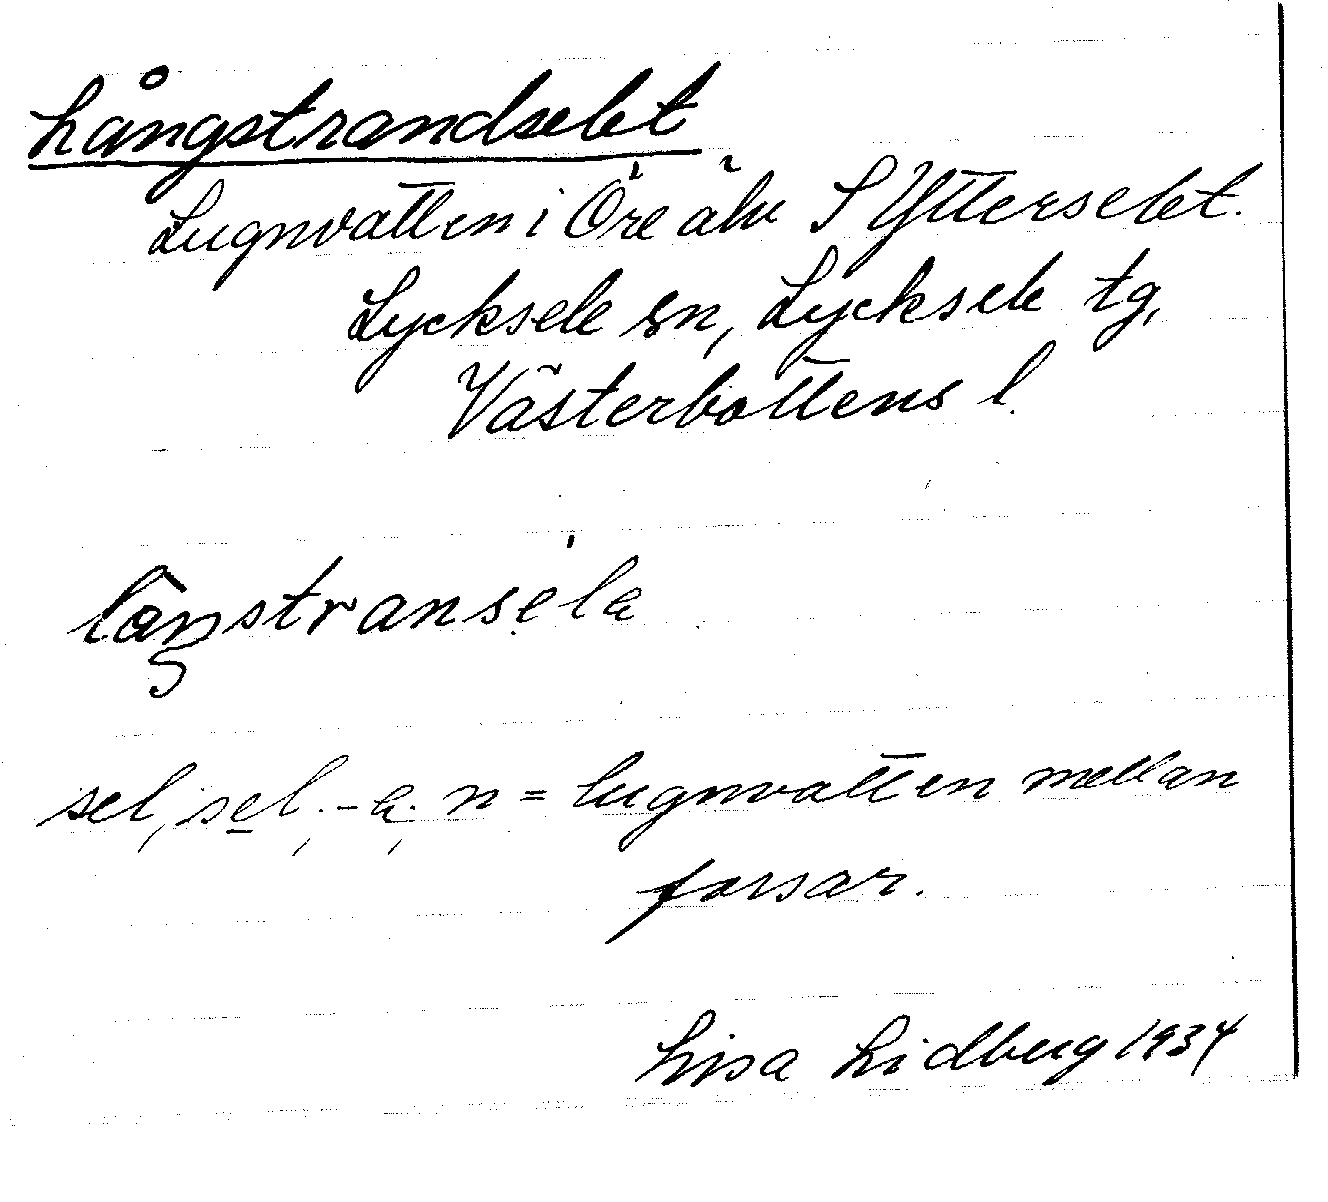 Långstrandselet
Lugnvatten i Öre älv S Ytterselet.
Lycksele sn, Lycksele tg,
Västerbottens l.
låŋstransela
sel, sel, -a, n = lugnvatten mellan
forsar.
Lisa Lidberg 1934